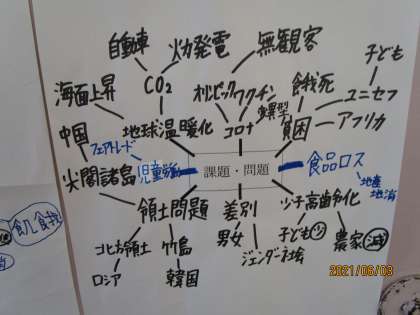 自動車
火力発電
無観客
子ども
海面上昇
CO₂
オリンピック
ワクチン
餓死
ユニセフ
中国
地球温暖化
コロナ
変異型
貧困
アフリカ
フェアトレード
尖閣諸島
児童労
課題・問題
食品ロス
地産
地消
領土問題
差別
少子高齢化
北方領土
竹島
男女
子ども少
農家減
ロシア
韓国
ジェンダー社会
飢餓
2021/06/03